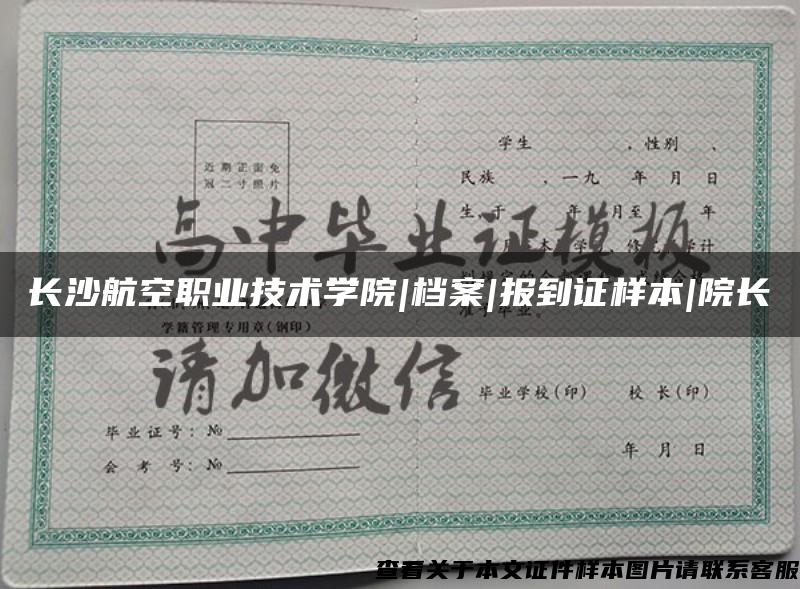 学生 ，性别 、
近期正面免
冠二寸照片
民族 ，一九 年 月 日
生，于 年 月至 年
高中毕业证模板
长沙航空职业技术学院|档案|报到证样本|院长
学籍管理专用章(钢印)
准予毕业。
请加微信
毕业学校(印) 校 长(印)
毕业证号：№
会 考 号：№
年 月 日
查看关于本文证件样本图片请联系客服